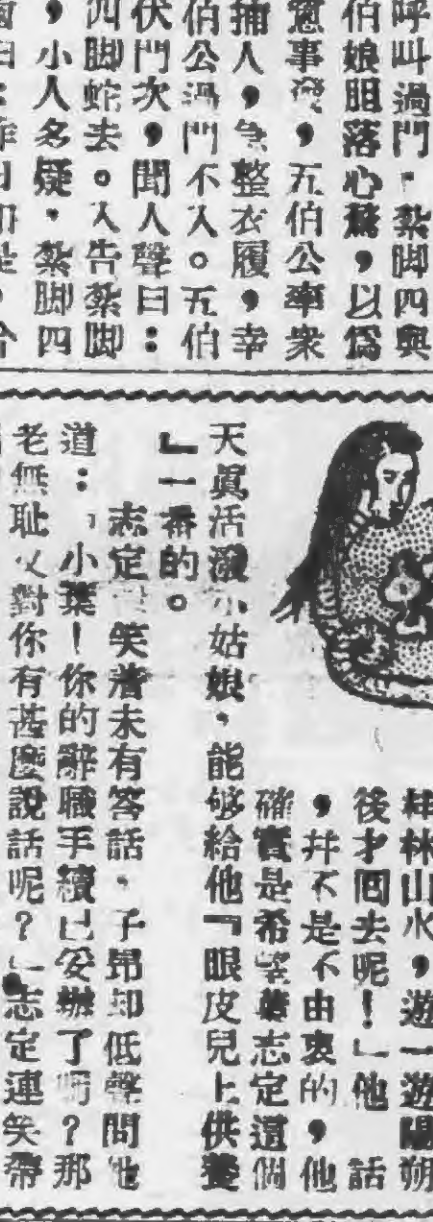 呼叫過門，紮脚四與
伯娘胆落心驚，以爲
事發，五伯公率衆
捕人，急整衣履，幸
伯公過門不入。五伯
伏門次，聞人聲曰：
四脚蛇去。入告紮脚
，小人多疑，紮脚四
林山水，遊一遊陽朔
後才囘去呢！」他話
，幷不是由衷的，他
確實是希望葉志定這個
天眞活潑小姑娘，能够給他『眼皮兒上供養
』一番的。
志定笑着未有答話，子昂却低聲問她
道：「小葉！你的辭職手續已妥辦了嗎？那
老無耻又對你有甚麽說話呢？」志定連笑帶